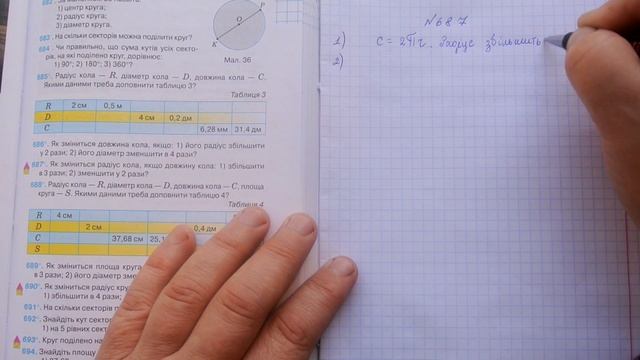 1) центр круга;
2) радіус круга;
3) діаметр круга.
683. На скільки секторів можна поділити круг?
684. Чи правильно, що сума кутів усіх секто-
рів, на які поділено круг, дорівнює:
1) 90°; 2) 180°; 3) 360°?
P
O
K
Мал. 36
685°. Радіус кола — R, діаметр кола — D, довжина кола — C.
Якими даними треба доповнити таблицю 3?
Таблиця 3
R 2 см 0,5 м
D 4 см 0,2 дм
C 6,28 мм 31,4 дм
686°. Як зміниться довжина кола, якщо: 1) його радіус збільшити
у 2 рази; 2) його діаметр зменшити в 4 рази?
687°. Як зміниться радіус кола, якщо довжину кола: 1) збільшити
в 3 рази; 2) зменшити у 2 рази?
688°. Радіус кола — R, діаметр кола — D, довжина кола — C, площа
круга — S. Якими даними треба доповнити таблицю 4?
Таблиця 4
R 4 см
D 2 см 0,4 дм
C 37,68 см 25,1
S
689°. Як зміниться площа круга
в 3 рази; 2) його діаметр змен
690°. Як зміниться радіус кру
1) збільшити в 4 рази;
691°. На скільки секторів
692°. Знайдіть кут секто
1) на 5 рівних секто
693°. Круг поділено на
694. Знайдіть площу
№687
1) C = 2πr. Радіус збільшить
2)